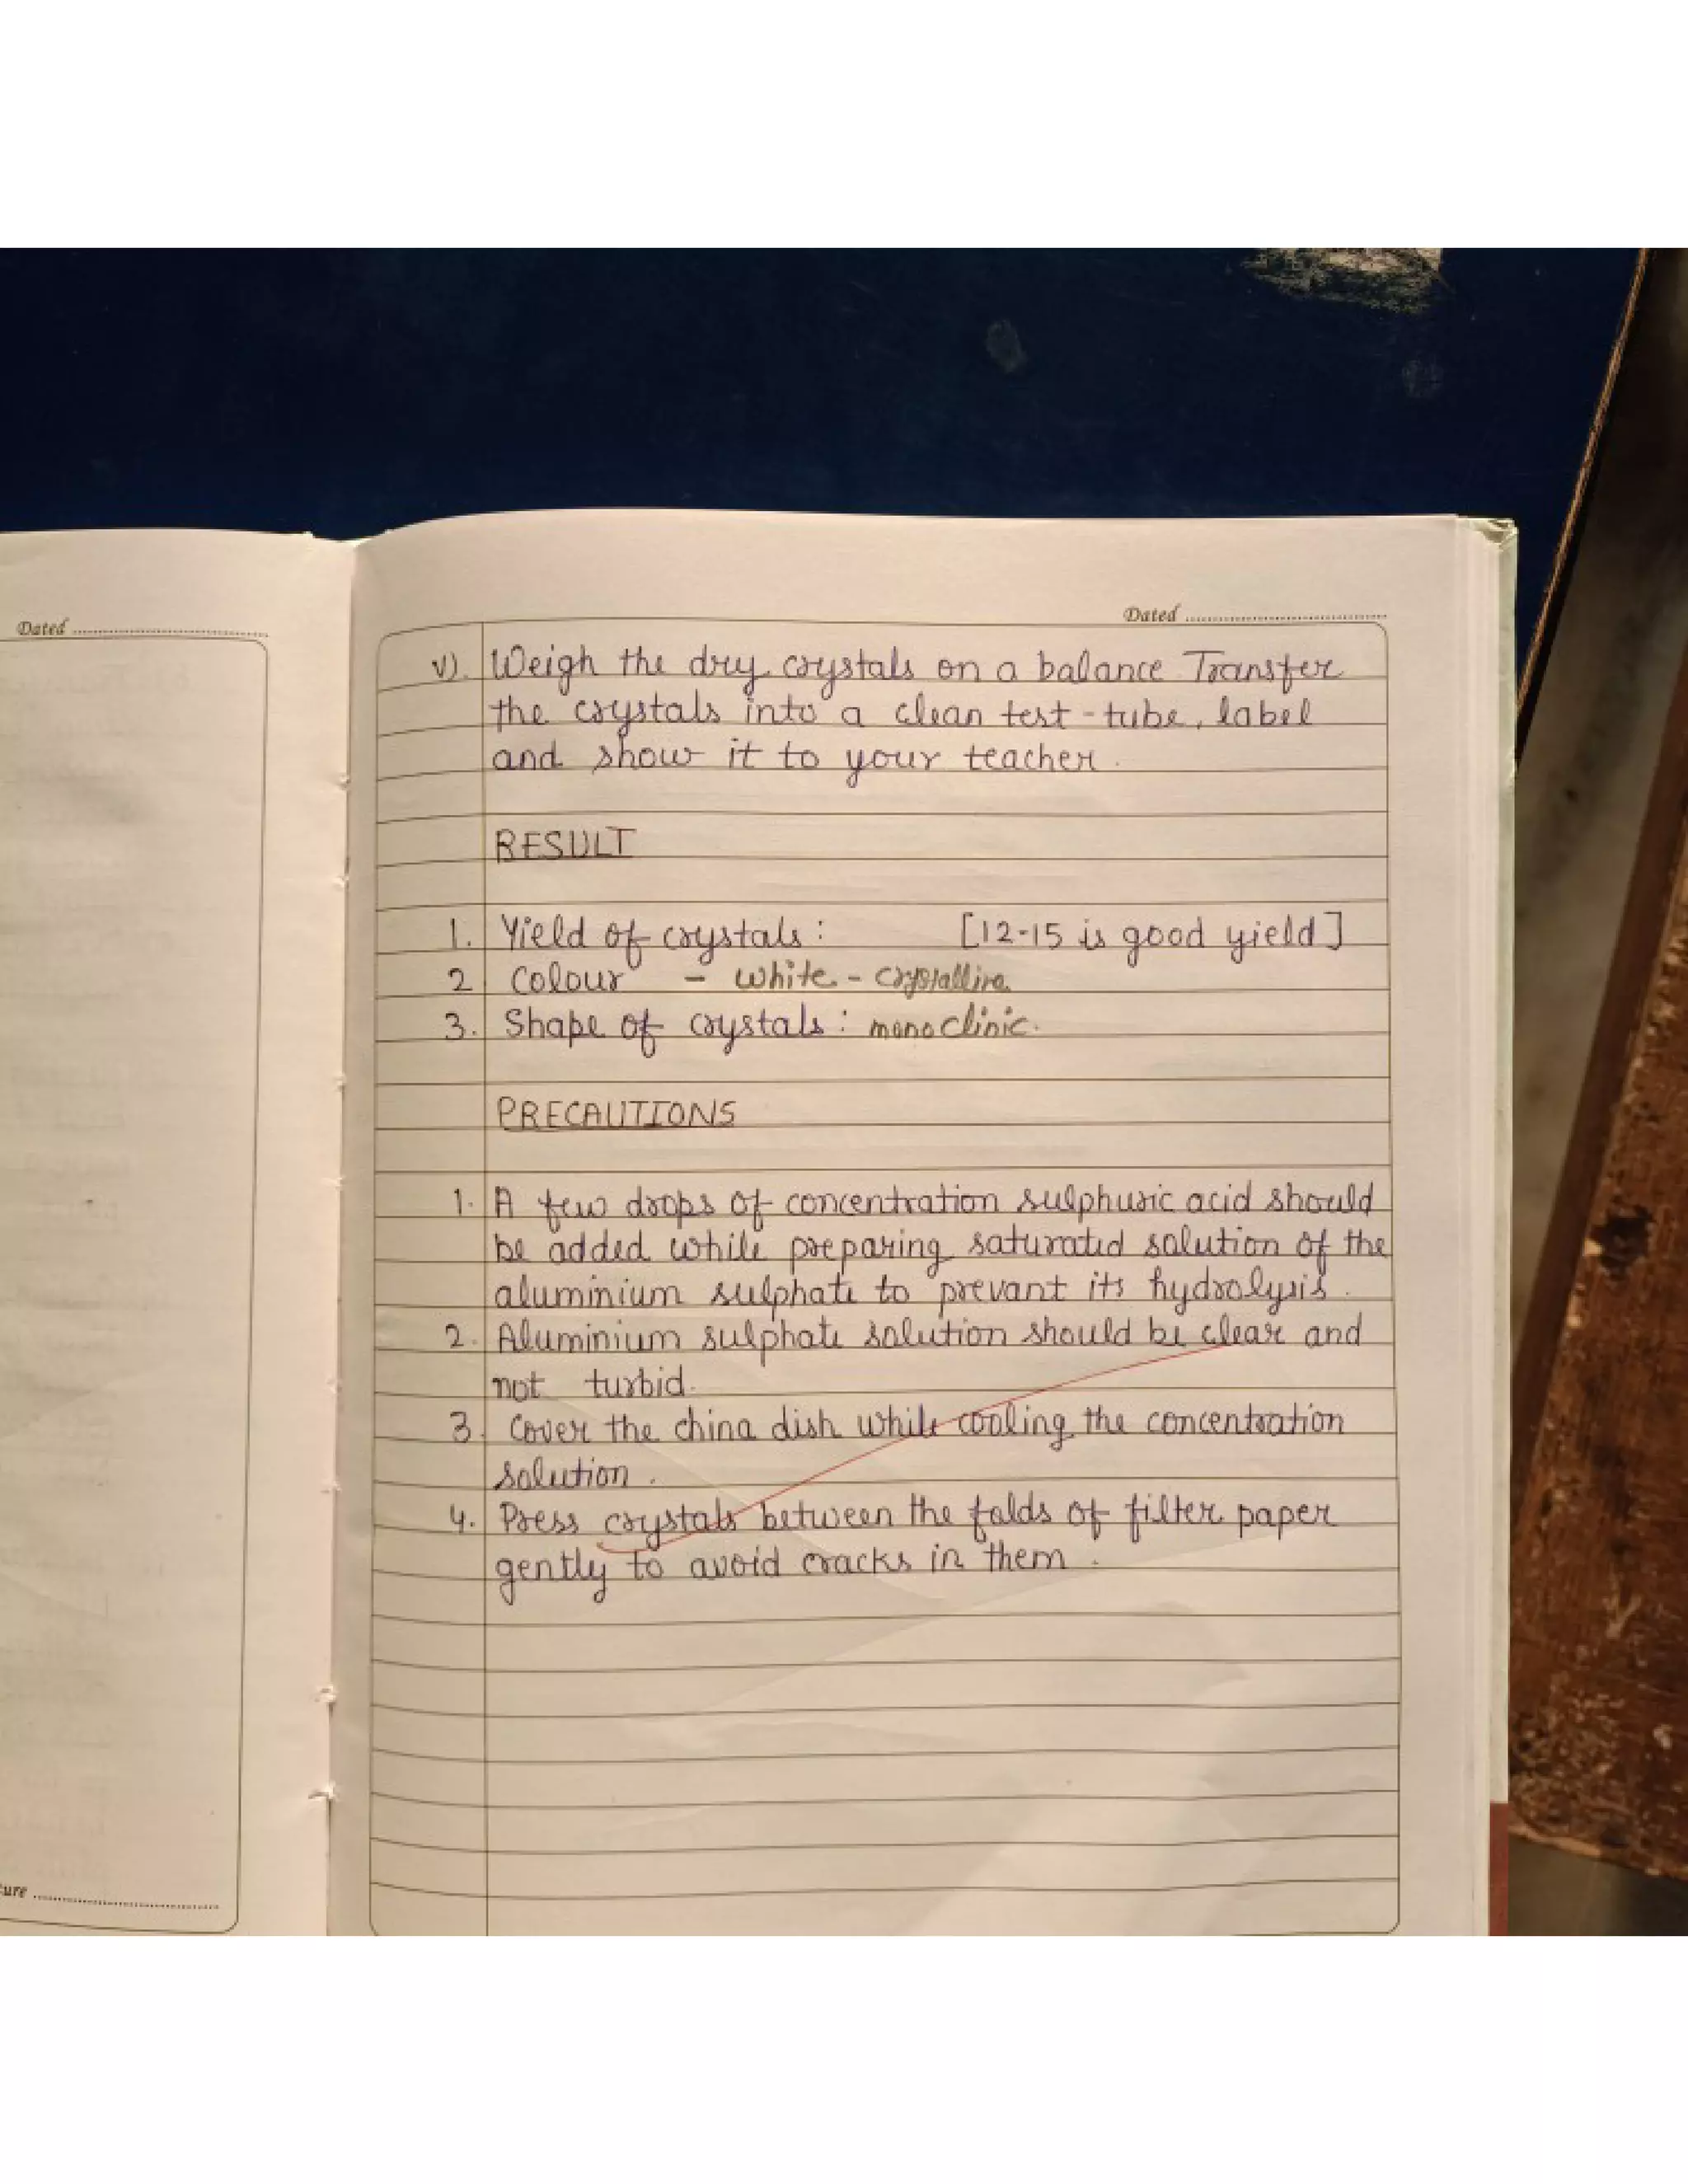 Dated
Dated
v). Weigh the dry crystals on a balance Transfer
the crystals into a clean test-tube, label
and show it to your teacher.
RESULT
1. Yield of crystals : [12-15 is good yield]
2 Colour - white - crystalline
3. Shape of crystals : monoclinic.
PRECAUTIONS
1. A few drops of concentration sulphuric acid should
be added while preparing saturated solution of the
aluminium sulphate to prevant its hydrolysis.
2. Aluminium sulphate solution should be clear and
not turbid.
3. Cover the china dish while cooling the concentration
solution.
4. Press crystals between the folds of filter paper
gently to avoid cracks in them.
ture